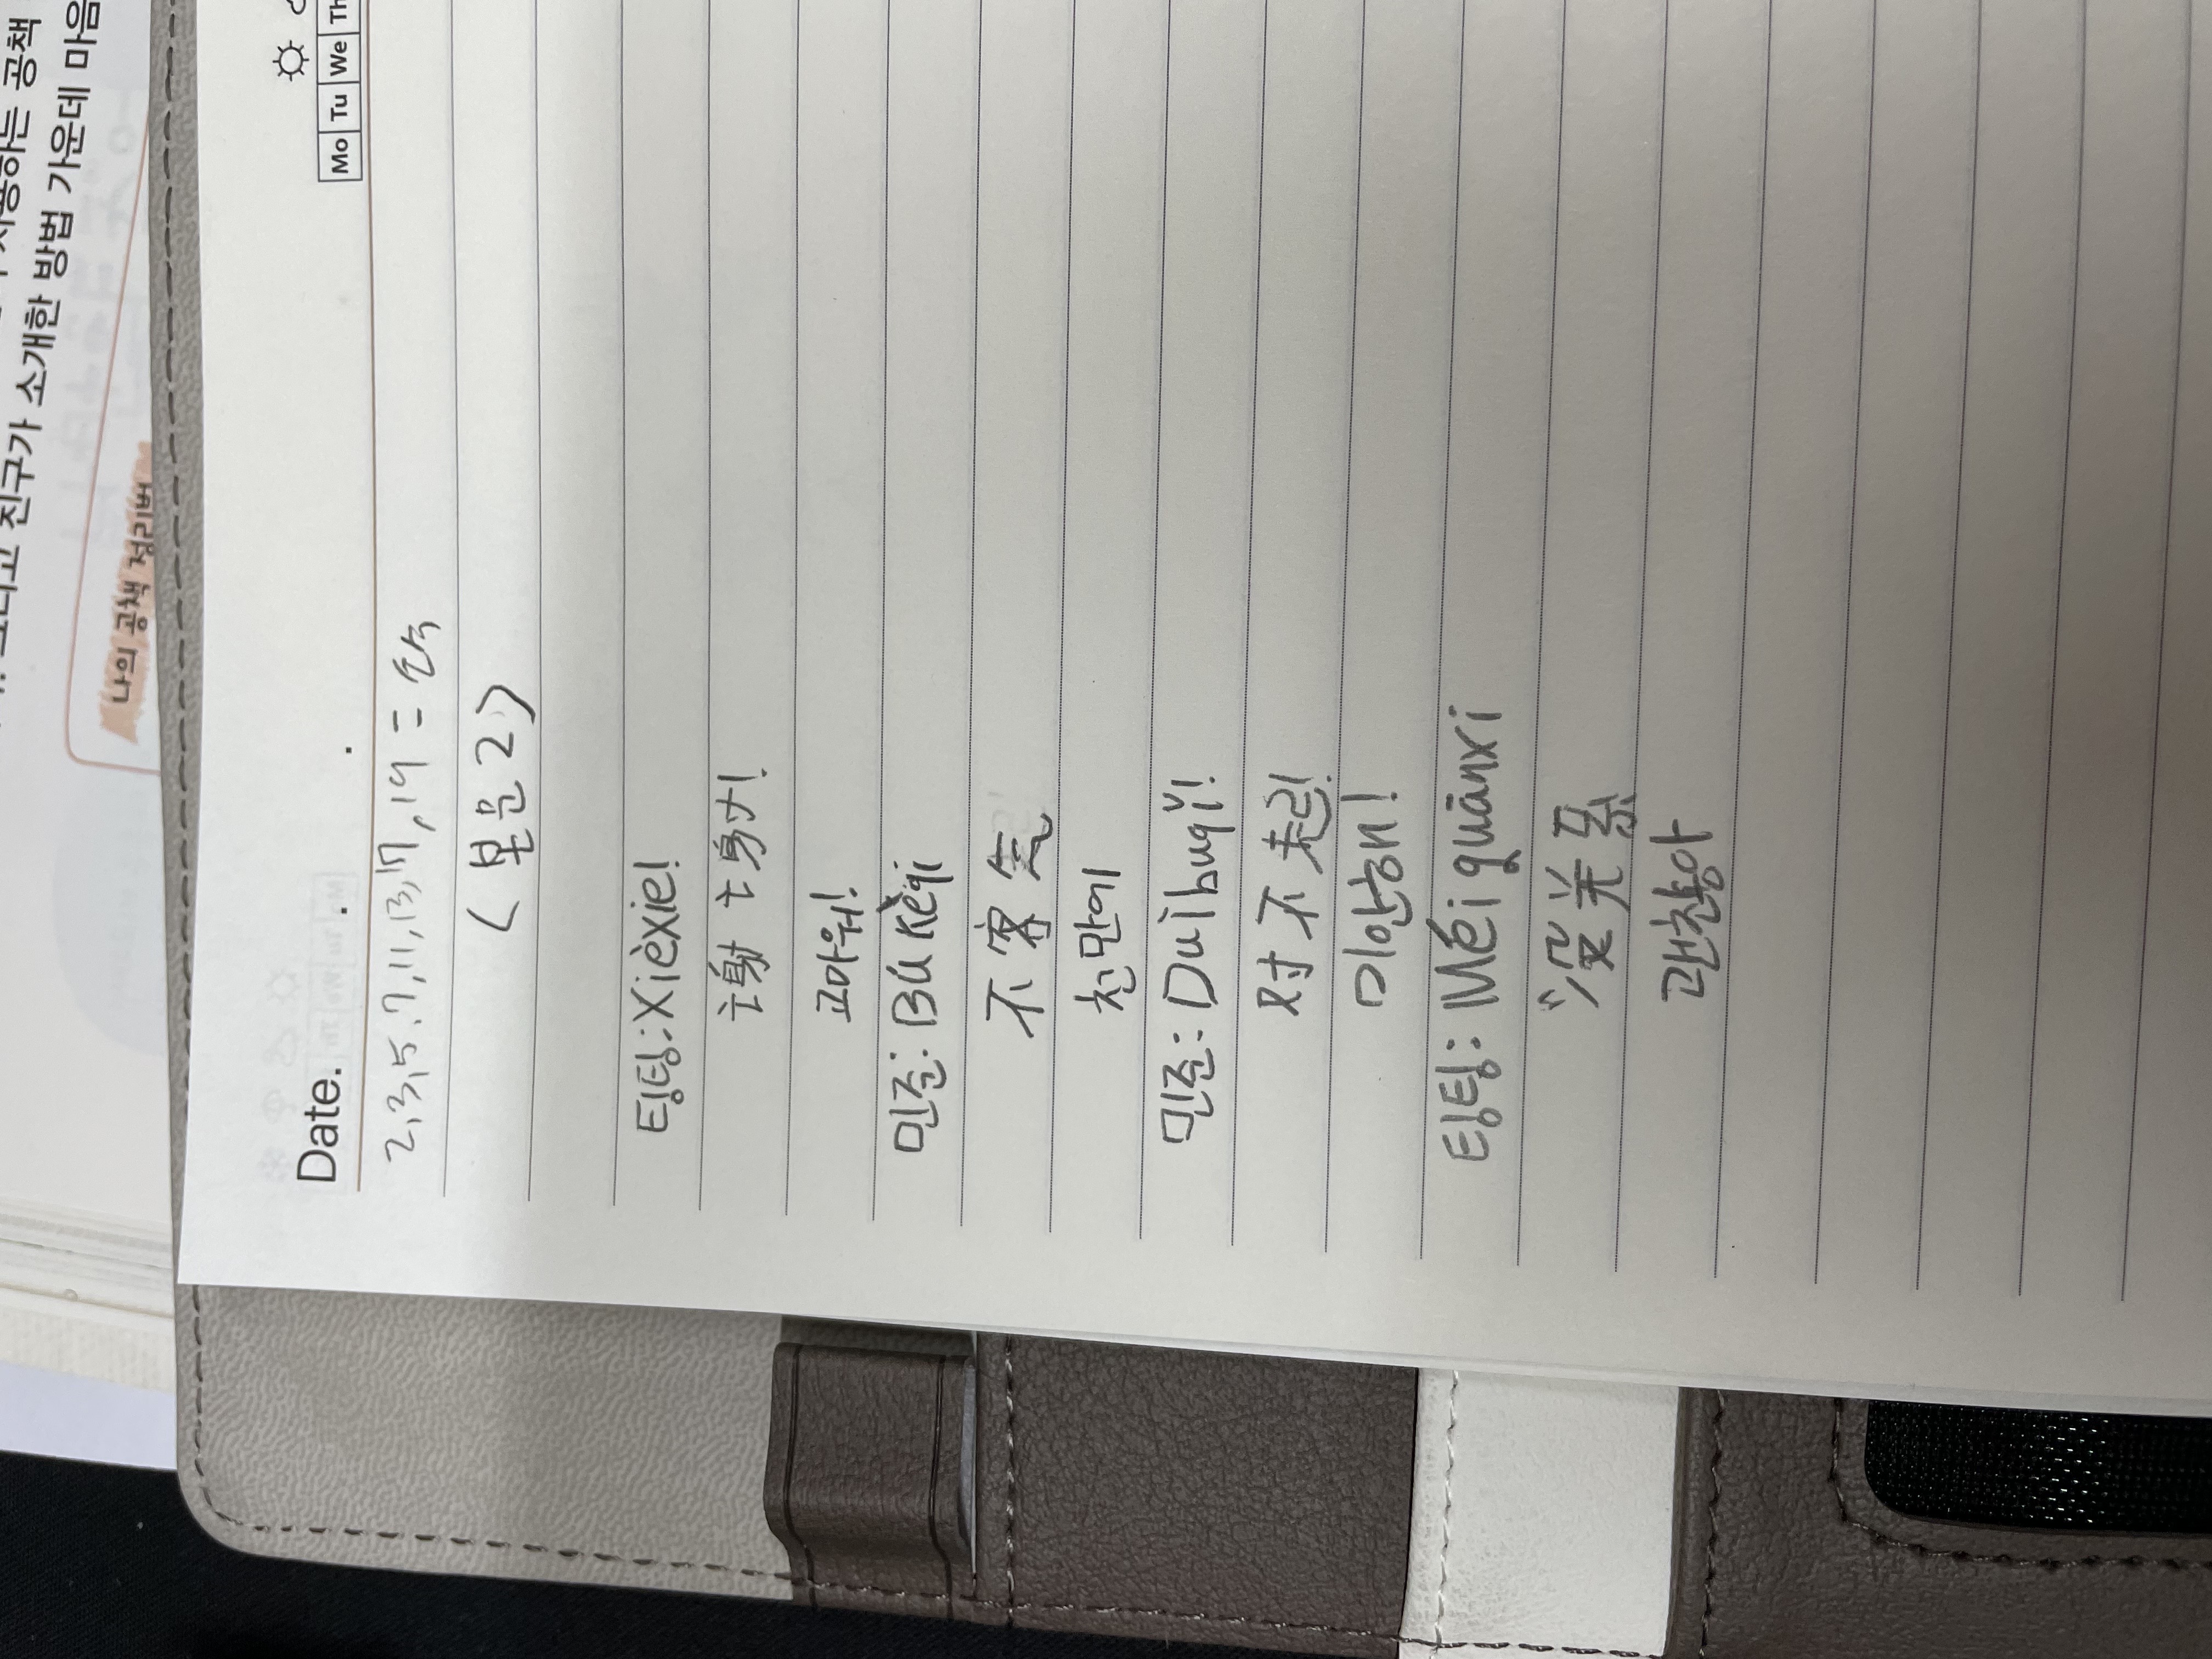 사용하는 공책
그리고 친구가 소개한 방법 가운데 마음
나의 공책 정리법
Date. . .
Mo Tu We Th
2,3,5,7,11,13,17,19 = 소수
<본문2>
팅팅: Xièxie!
谢谢!
고마워!
민준: Bú kèqi
不客气
천만에
민준: Duìbuqǐ!
对不起!
미안해!
팅팅: Méi quānxi
没关系
괜찮아